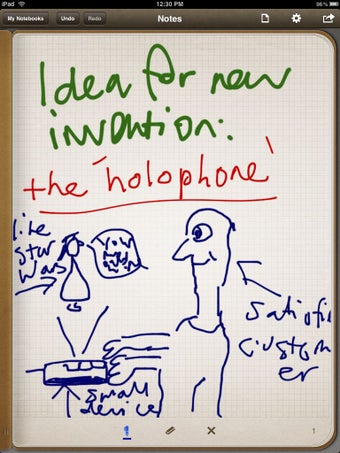 iPad
12:30 PM
96%
My Notebooks
Undo
Redo
Notes
Idea for new
invention:
the 'holophone'
like
star
wars
small
device
customer
1